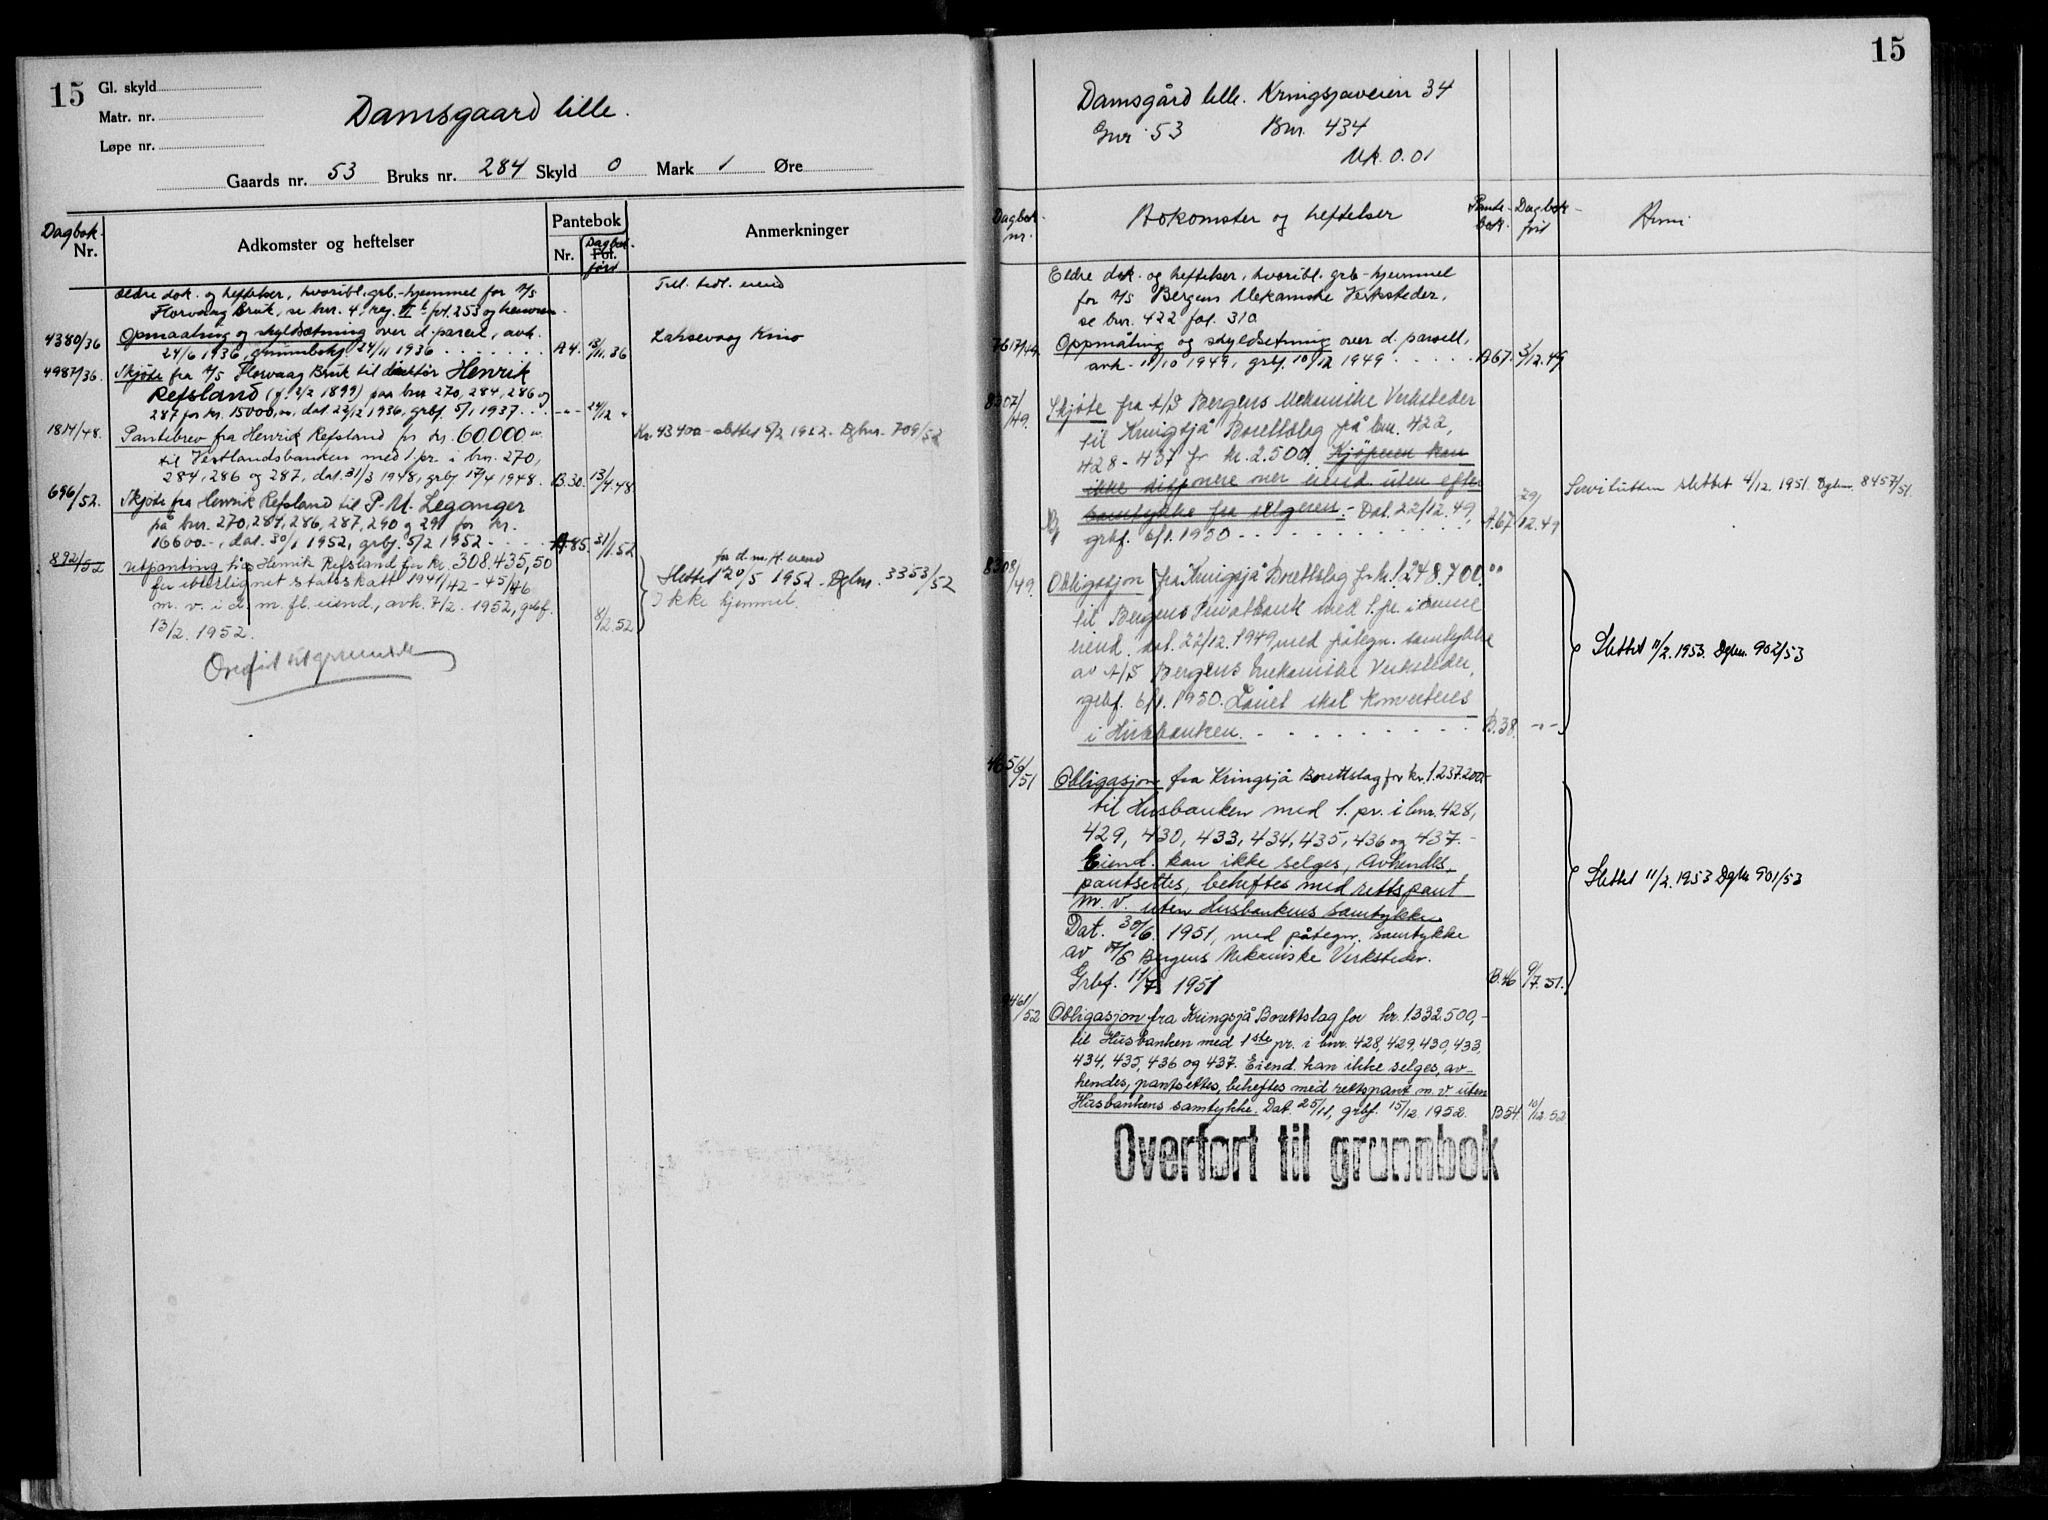 15
Gl. skyld
Matr. nr.
Løpe nr.
Damsgaard lille.
Gaards nr. 53 Bruks nr. 284 Skyld 0 Mark 1 Øre
Dagbok-
Nr.
Adkomster og heftelser
Pantebok
Nr.
Dagbok-
Fol.
ført
Anmerkninger
Ældre dok. og heftelser, hvoribl. grb.-hjemmel for A/S
Florvaag Bruk, se bnr. 4. reg. II fol. 253 og henviser
Till. tidl. eiend
4380/36 Opmaaling og skyldsetning over d. parsel, avh.
24/6 1936, grunnbokf 24/11 1936 A 4. 13/11.36
Laksevaag Kino
4987/36. Skjøte fra A/S Florvaag Bruk til direktør Henrik
Refsland (f. 2/2 1899) paa bnr 270, 284, 286 og
287 for kr. 15000,00, dat 22/12 1936, grbf. 5/1 1937 -"- 24/12 "
1814/48. Pantebrev fra Henrik Refsland for kr. 60.000.00
til Vestlandsbanken med 1. pr. i bnr. 270,
284, 286 og 287, dat. 31/3 1948, grbf 17/4 1948. B.30. 13/4.48.
Kr. 43400 - slettet 5/2 1952. Dgbnr. 709/52
696/52. Skjøte fra Henrik Refsland til P. M. Leganger
på bnr. 270, 284, 286, 287, 290 og 291 for kr.
16600.-, dat. 30/1 1952, grbf. 5/2 1952 A.85. 31/1.52
892/52 Utpanting hos Henrik Refsland for kr. 308.435,50
for iberlignet statsskatt 1941/42 - 45/46
m. v. i d. m. fl. eiend, avh. 7/2. 1952, grbf.
13/2. 1952. 8/2.52
for d. m. fl. eiend
Slettet 20/5 1952. Dgbnr. 3353/52
Ikke hjemmel.
15
Damsgård lille. Kringsjåveien 34
Gnr. 53 Bnr. 434
Mk. 0.01
Dagbok-
nr.
Adkomster og heftelser
Pante-
bok.
Dagbok-
ført
Anm
Eldre dok. og heftelser, hvoribl. grb-hjemmel
for A/S Bergens Mekaniske Verksteder,
se bnr. 422 fol. 310
7617/49. Oppmåling og skyldsetning over d. parsell,
avh. 11/10 1949, grbf. 10/12 1949 A67. 3/12.49
8307/49. Skjøte fra A/S Bergens Mekaniske Verksteder
til Kringsjå Borettslag på bnr. 422,
428 - 437 for kr. 2.500. Kjøperen kan
ikke disponere over eiend uten efter
samtykke fra selgeren. - Dat. 22/12. 49,
grbf. 6/1. 1950 A.67 29/12.49
Servitutten slettet 4/12. 1951. Dgbnr. 8457/51.
8308/49. Obligasjon fra Kringsjå Borettslag for kr. 1.248.700.00
til Bergens Privatbank med 1. pr. i denne
eiend. dat. 22/12. 1949, med påtegn. samtykke
av A/S Bergens Mekaniske Verksteder,
grbf. 6/1. 1950. Lånet skal konverteres
i Husbanken. B.38. -"-
Slettet 11/2. 1953. Dgbnr. 902/53
4656/51 Obligasjon fra Kringsjå Borettslag for kr. 1.237.200.-
til Husbanken med 1. pr. i bnr. 428,
429, 430, 433, 434, 435, 436 og 437.-
Eiend. kan ikke selges, avhendes,
pantsettes, beheftes med rettspant
m. v. uten Husbankens samtykke.
Dat. 30/6 1951, med påtegn. samtykke
av A/S Bergens Mekaniske Verksteder.
Grbf. 11/7 1951 B.46 9/7.51.
Slettet 11/2. 1953 Dgbnr 901/53
9461/52 Obligasjon fra Kringsjå Borettslag for kr. 1.332.500,-
til Husbanken med 1ste pr. i bnr. 428, 429, 430, 433,
434, 435, 436 og 437. Eiend. kan ikke selges, av-
hendes, pantsettes, beheftes med rettspant m. v. uten
Husbankens samtykke. Dat. 25/11, grbf. 15/12. 1952. B54. 10/12.52
Overført til grunnbok